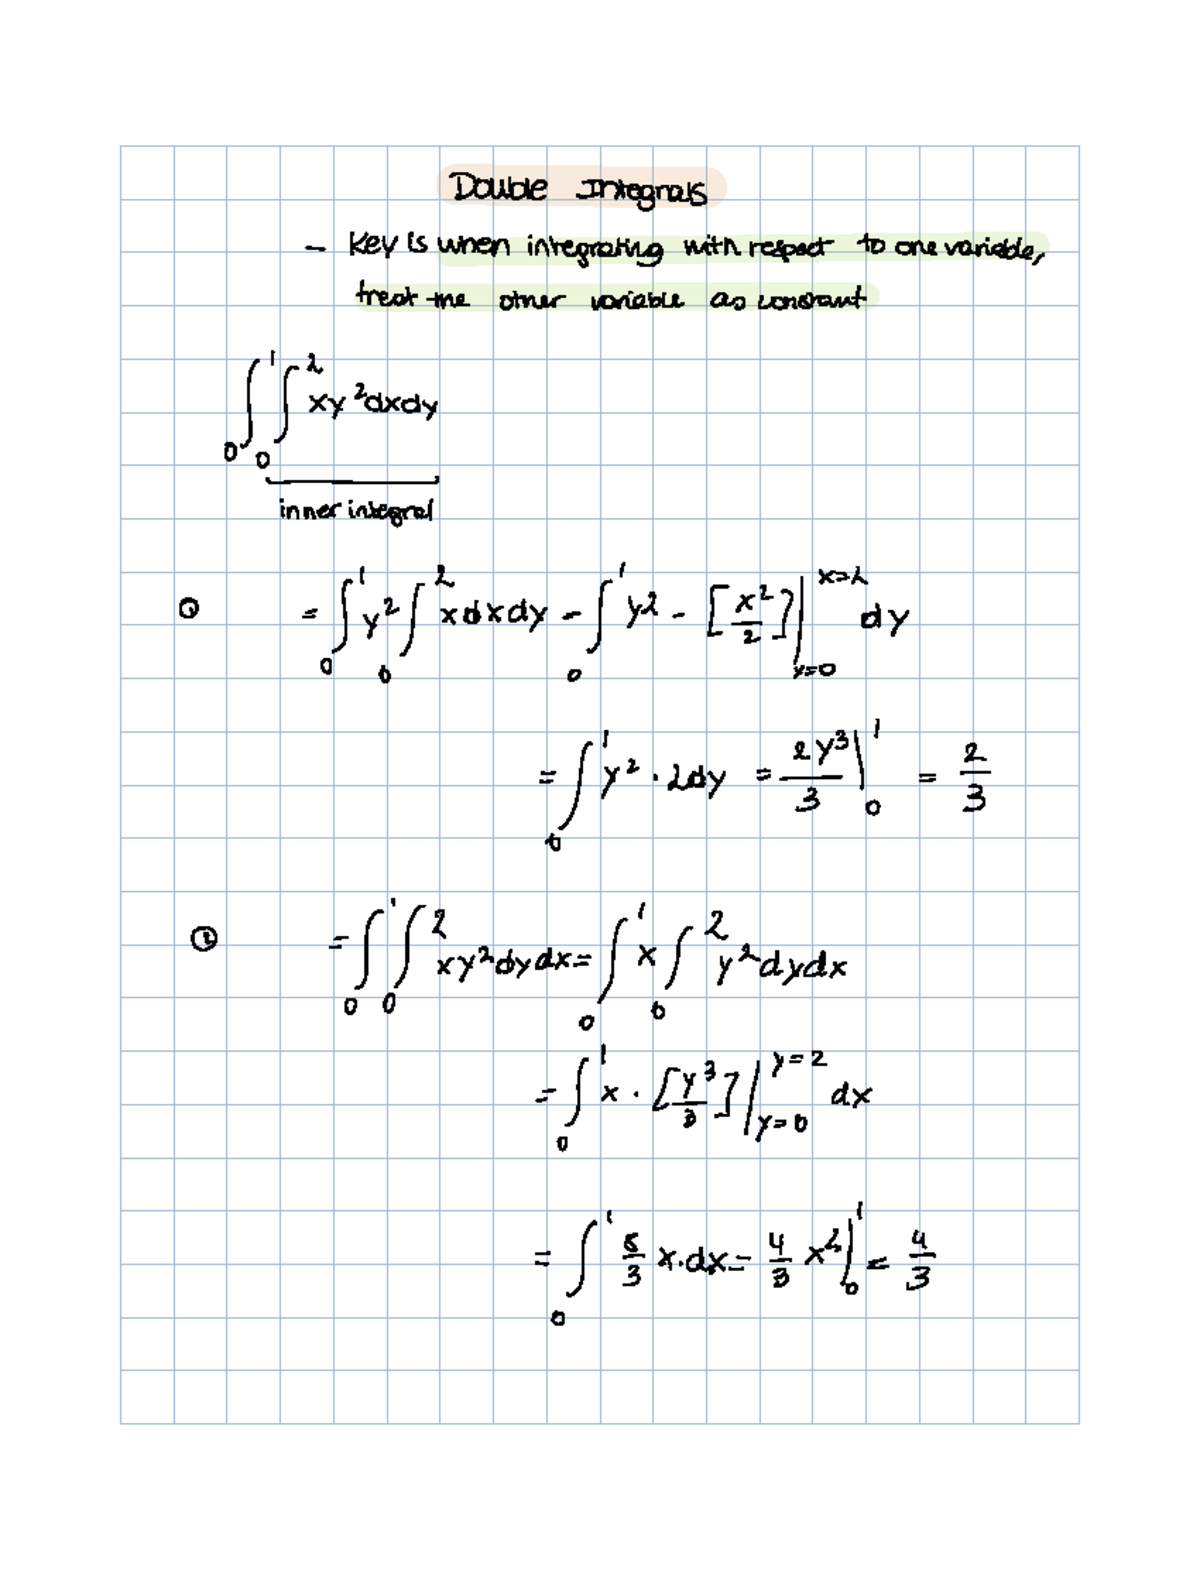 Double Integrals
- Key is when integrating with respect to one variable,
treat the other variable as constant
∫₀¹ ∫₀² xy² dxdy
inner integral
① = ∫₀¹ y² ∫₀² x dx dy - ∫₀¹ y² - [x²/2] |ₓ₌₀ˣ⁼² dy
= ∫₀¹ y² · 2dy = 2y³/3 |₀¹ = 2/3
② = ∫₀¹ ∫₀² xy² dy dx = ∫₀¹ x ∫₀² y² dydx
= ∫₀¹ x · [y³/3] |_{y=0}^{y=2} dx
= ∫₀¹ 8/3 x·dx = 4/3 x² |₀¹ = 4/3